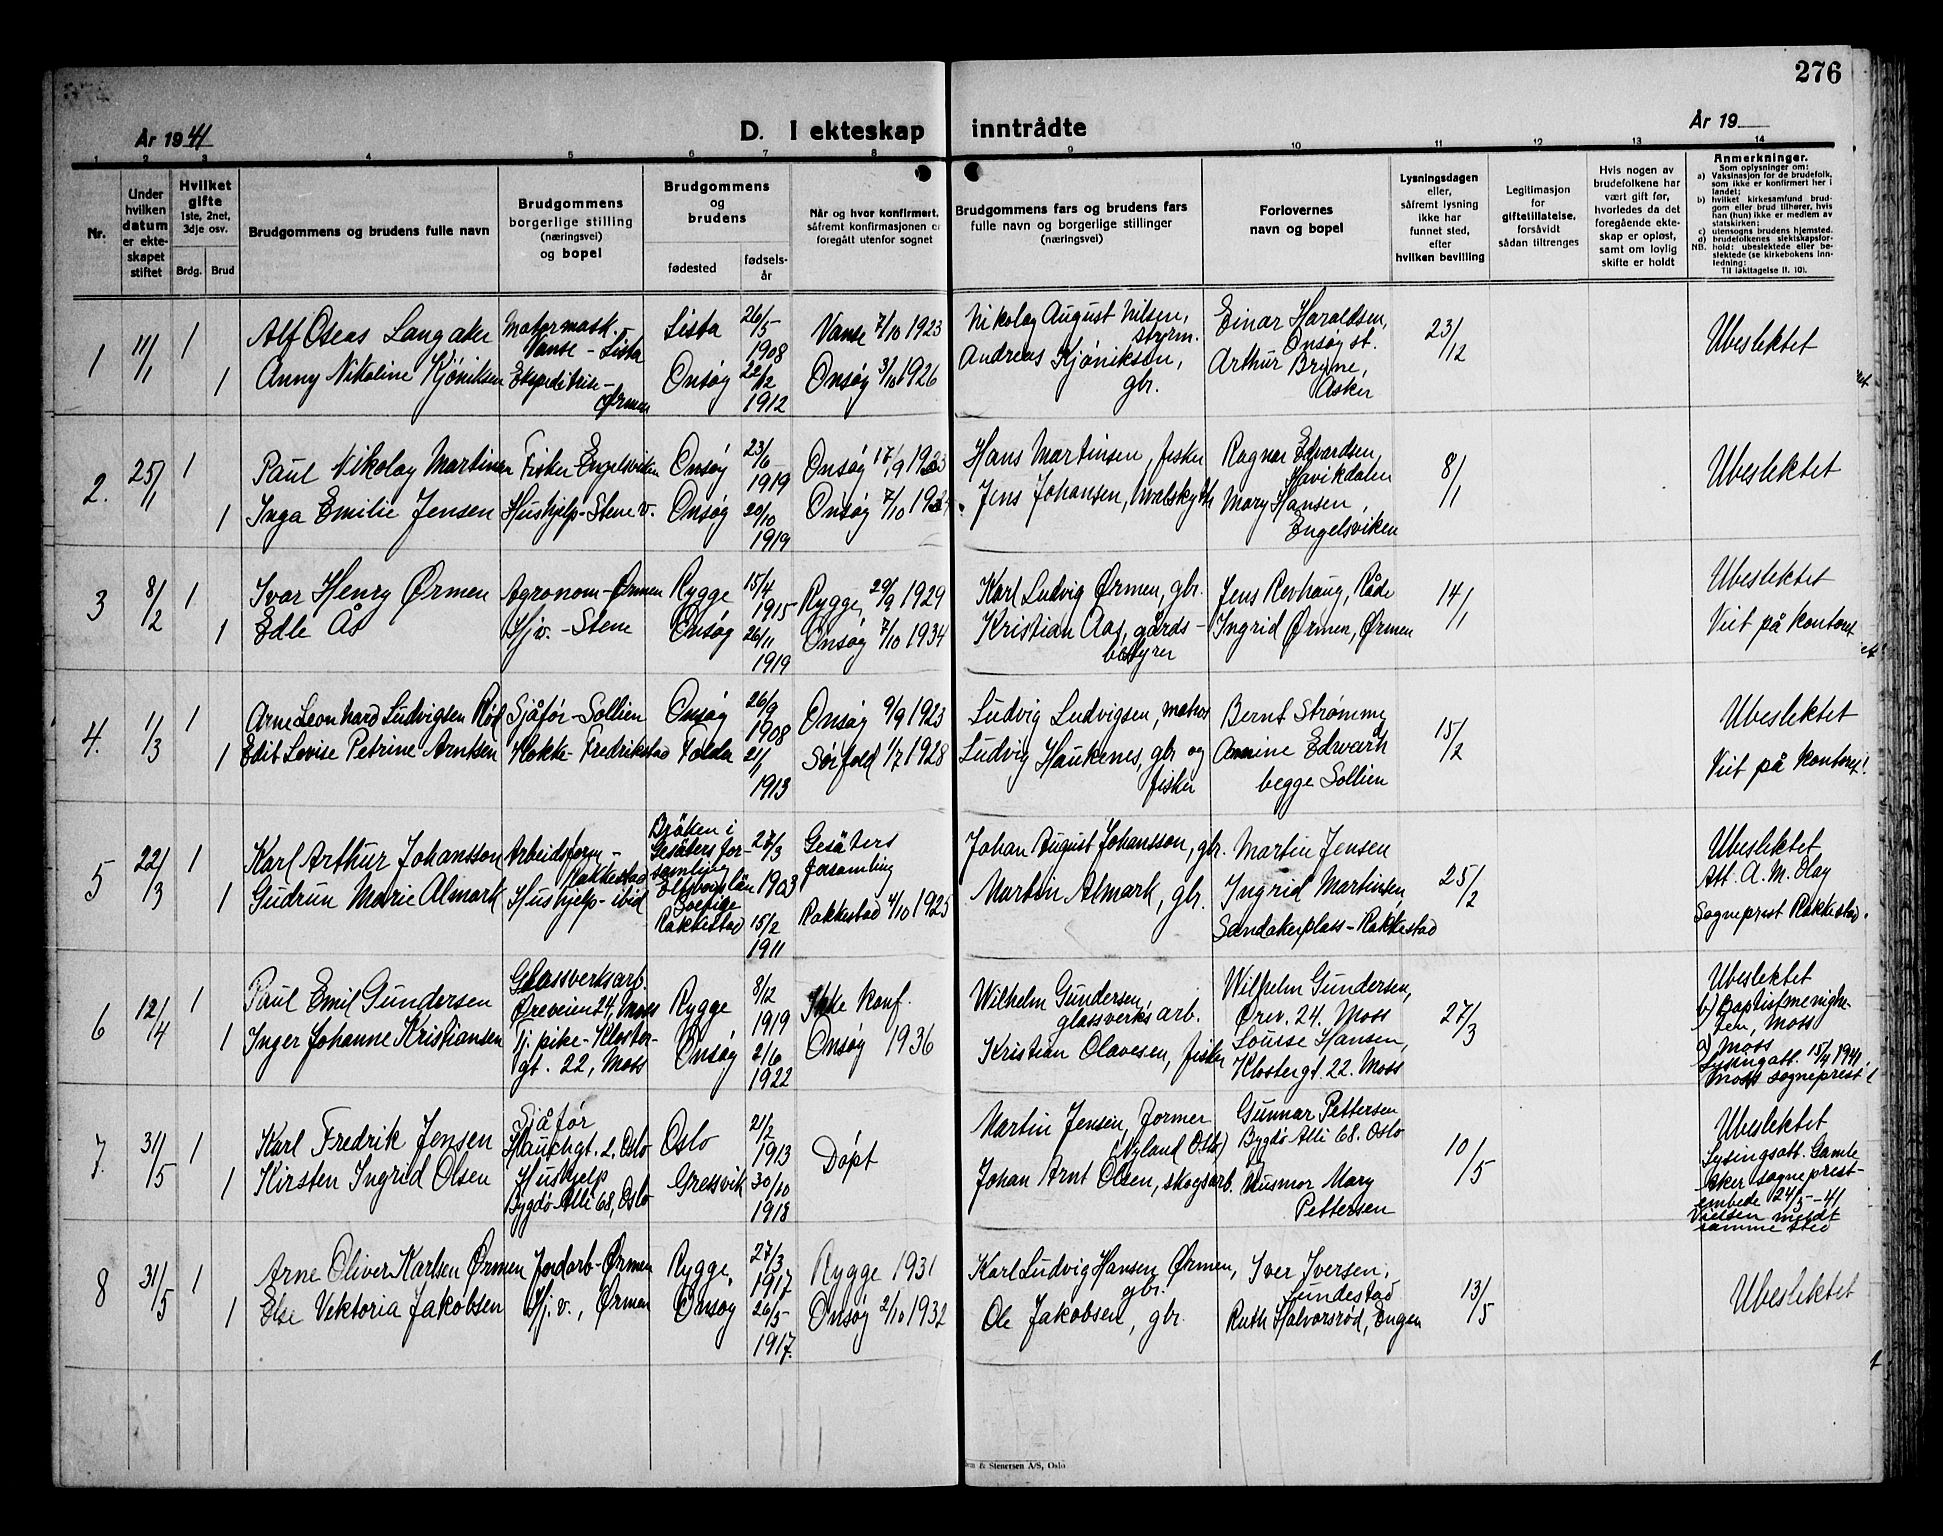 276
År 1941
D. I ekteskap inntrådte
År 19
1 2 3 4 5 6 7 8 9 10 11 12 13 14
Nr.
Under hvilken datum er ekteskapet stiftet
Hvilket gifte
1ste, 2net, 3dje osv.
Brdg. Brud
Brudgommens og brudens fulle navn
Brudgommens borgerlige stilling (næringsvei) og bopel
Brudgommens og brudens
fødested
fødselsår
Når og hvor konfirmert, såfremt konfirmasjonen er foregått utenfor sognet
Brudgommens fars og brudens fars fulle navn og borgerlige stillinger (næringsvei)
Forlovernes navn og bopel
Lysningsdagen eller, såfremt lysning ikke har funnet sted, efter hvilken bevilling
Legitimasjon for giftetillatelse, forsåvidt sådan tiltrenges
Hvis nogen av brudefolkene har vært gift før, hvorledes da det foregående ekteskap er opløst, samt om lovlig skifte er holdt
Anmerkninger.
Som oplysninger om:
a) Vaksinasjon for de brudefolk, som ikke er konfirmert her i landet;
b) hvilket kirkesamfund brudgom eller brud tilhører, hvis han (hun) ikke er medlem av statskirken;
c) utensogns brudens hjemsted.
d) brudefolkenes slektskapsforhold: ubeslektede eller beslektede (se kirkebokens innledning:
NB.
Til iakttagelse II. 10).
1 11/1 1 Alf Oseas Langaker Motormask. Vanse - Lista Lista 26/5 1908 Vanse 7/10 1923 Nikolay August Nilsen, styrm. Einar Haraldsen, Onsøy st. 23/12 Ubeslektet
1 Anny Nikoline Kjöniksen Ekspeditrise - Ørmen Onsøy 22/12 1912 Onsøy 3/10 1926 Andreas Kjöniksen, gbr. Arthur Bryne, Asker
2. 25/1 1 Paul Nikolay Martinsen Fisker Engelsviken Onsøy 23/6 1919 Onsøy 17/9 1933 Hans Martinsen, fisker Ragnar Edvardsen, Havikdalen 8/1 Ubeslektet
1 Inga Emilie Jensen Hushjelp - Stene v. Onsøy 20/10 1919 Onsøy 7/10 1934 Jens Johansen, hvalskytt. Mary Hansen, Engelsviken
3 8/2 1 Ivar Henry Ørmen Agronom - Ørmen Rygge 15/4 1915 Rygge, 29/9 1929 Karl Ludvig Ørmen, gbr. Jens Revhaug, Råde 14/1 Ubeslektet
1 Edle Ås Hj.v. - Stene Onsøy 26/11 1919 Onsøy 7/10 1934 Kristian Aas, gårds- bestyrer Ingrid Ørmen, Ørmen Viet på kontoret
4. 1/3 1 Arne Leonhard Ludvigsen Rød Sjåfør - Sollien Onsøy 26/9 1908 Onsøy 9/9 1923 Ludvig Ludvigsen, matros Bernt Strømme 15/2 Ubeslektet
1 Edit Lovise Petrine Arntsen Kokke - Fredrikstad Folda 21/1 1913 Sörfold 1/7 1928 Ludvig Haukenes, gbr og fisker Edvardt begge Sollien Viet på kontoret!
5 22/3 1 Karl Arthur Johansson Arbeidsform - Rakkestad Bröken i Gesäters for- samling Elfsborgslän Sverige 27/3 1903 Gesäters forsamling Johan August Johansson, gbr. Martin Jensen 25/2 Ubeslektet Att. A. M. Olay
1 Gudrun Marie Almark Hushjelp - ibid Rakkestad 15/2 1911 Rakkestad 4/10 1925 Martin Almark, gbr. Ingrid Martinsen, Sandakerplass - Rakkestad Sogneprest Rakkestad.
6 12/4 1 Paul Emil Gundersen Glassverksarb. Øreveien 24, Moss Rygge 8/12 1919 Ikke konf. Wilhelm Gundersen, glassverksarb. Wilhelm Gundersen, Ørev. 24. Moss 27/3 Ubeslektet b) Baptistmenighe- ten, Moss
1 Inger Johanne Kristiansen Tj. pike - Kloster- gt. 22, Moss Onsøy 2/6 1922 Onsøy 1936 Kristian Olavesen, fisker Louise Hansen, Klostergt. 22. Moss Moss Lysingatt. 15/4 1941 Moss sogneprest
7. 31/5 1 Karl Fredrik Jensen Sjåfør Hauchgt. 2. Oslo Oslo 21/2 1913 Döpt Martin Jensen, former (Nyland Oslo) Gunnar Pettersen Bygdö Alli 68. Oslo 10/5 Ubeslektet Lysingsatt. Gamle
1 Kirsten Ingrid Olsen Hushjelp Bygdö Alli 68, Oslo Gressvik 30/10 1918 Johan Arnt Olsen, skogsarb. Husmor Mary Pettersen Aker sogneprest- embede 24/5 -41 Vielsen meldt samme sted
8 31/5 1 Arne Oliver Karlsen Ørmen Jordarb - Ørmen Rygge, 27/3 1917 Rygge 1931 Karl Ludvig Hansen Ørmen, gbr. Iver Iversen, Lundestad 13/5 Ubeslektet
1 Else Vektoria Jakobsen Hj.v., Ørmen Onsøy 26/5 1917. Onsøy 2/10 1932 Ole Jakobsen, gbr. Ruth Halvorsrød, Engen
& Stenersen A/S, Oslo